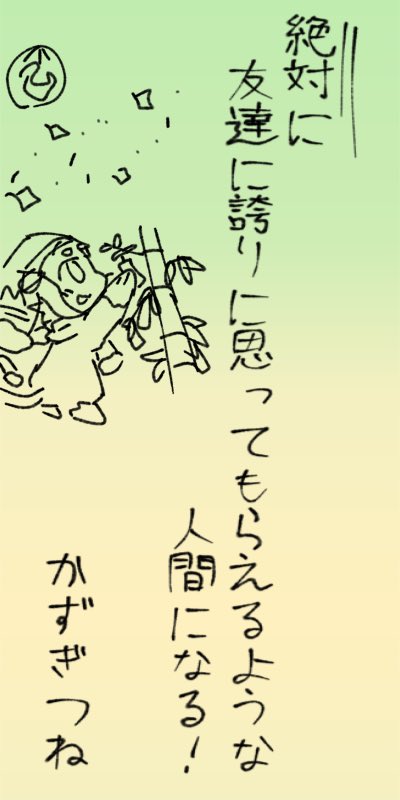 絶対に
友達に誇りに思ってもらえるような
人間になる！
かずぎつね